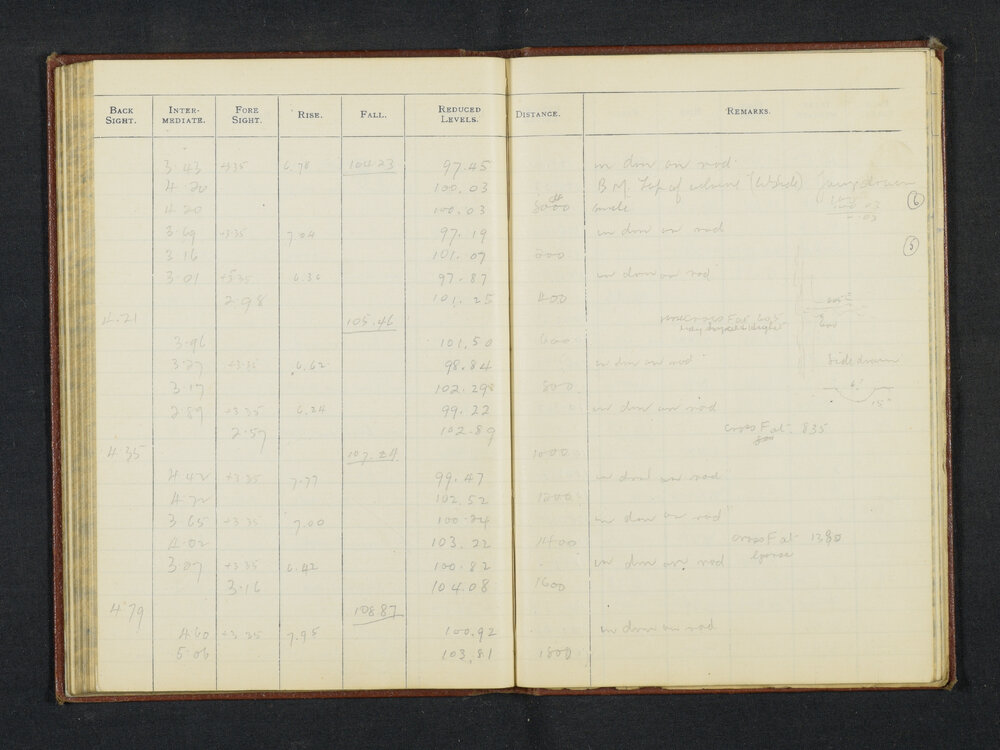 BACK SIGHT. INTER-MEDIATE. FORE SIGHT. RISE. FALL. REDUCED LEVELS. DISTANCE. REMARKS.
3.43 +3.35 6.78 104.23 97.45 in drn on rod
4.20 100.03 B.M. Top of
4.20 100.03 8000 6
3.69 +3.35 7.04 97.19 in drn on rod
3.16 101.07 200 5
3.01 +3.35 6.36 97.87 in drn on rod
2.98 101.25 400
4.21 105.46 Cross Fat 605
3.96 101.50 600
3.27 +3.35 6.62 98.84 in drn on rod Side drain
3.17 102.29 800 6'
2.89 +3.35 6.24 99.22 in drn on rod 15"
2.57 102.89 Cross Fat 835
4.35 107.24 1000
4.42 +3.35 7.77 99.47 in drn on rod
4.72 102.52 1200
3.65 +3.35 7.00 100.24 in drn on rod
4.02 103.22 1400 Cross Fat
3.07 +3.35 6.42 100.82 in drn on rod
3.16 104.08 1600
4.79 108.87
4.60 +3.35 7.95 100.92 in drn on rod
5.06 103.81 1800